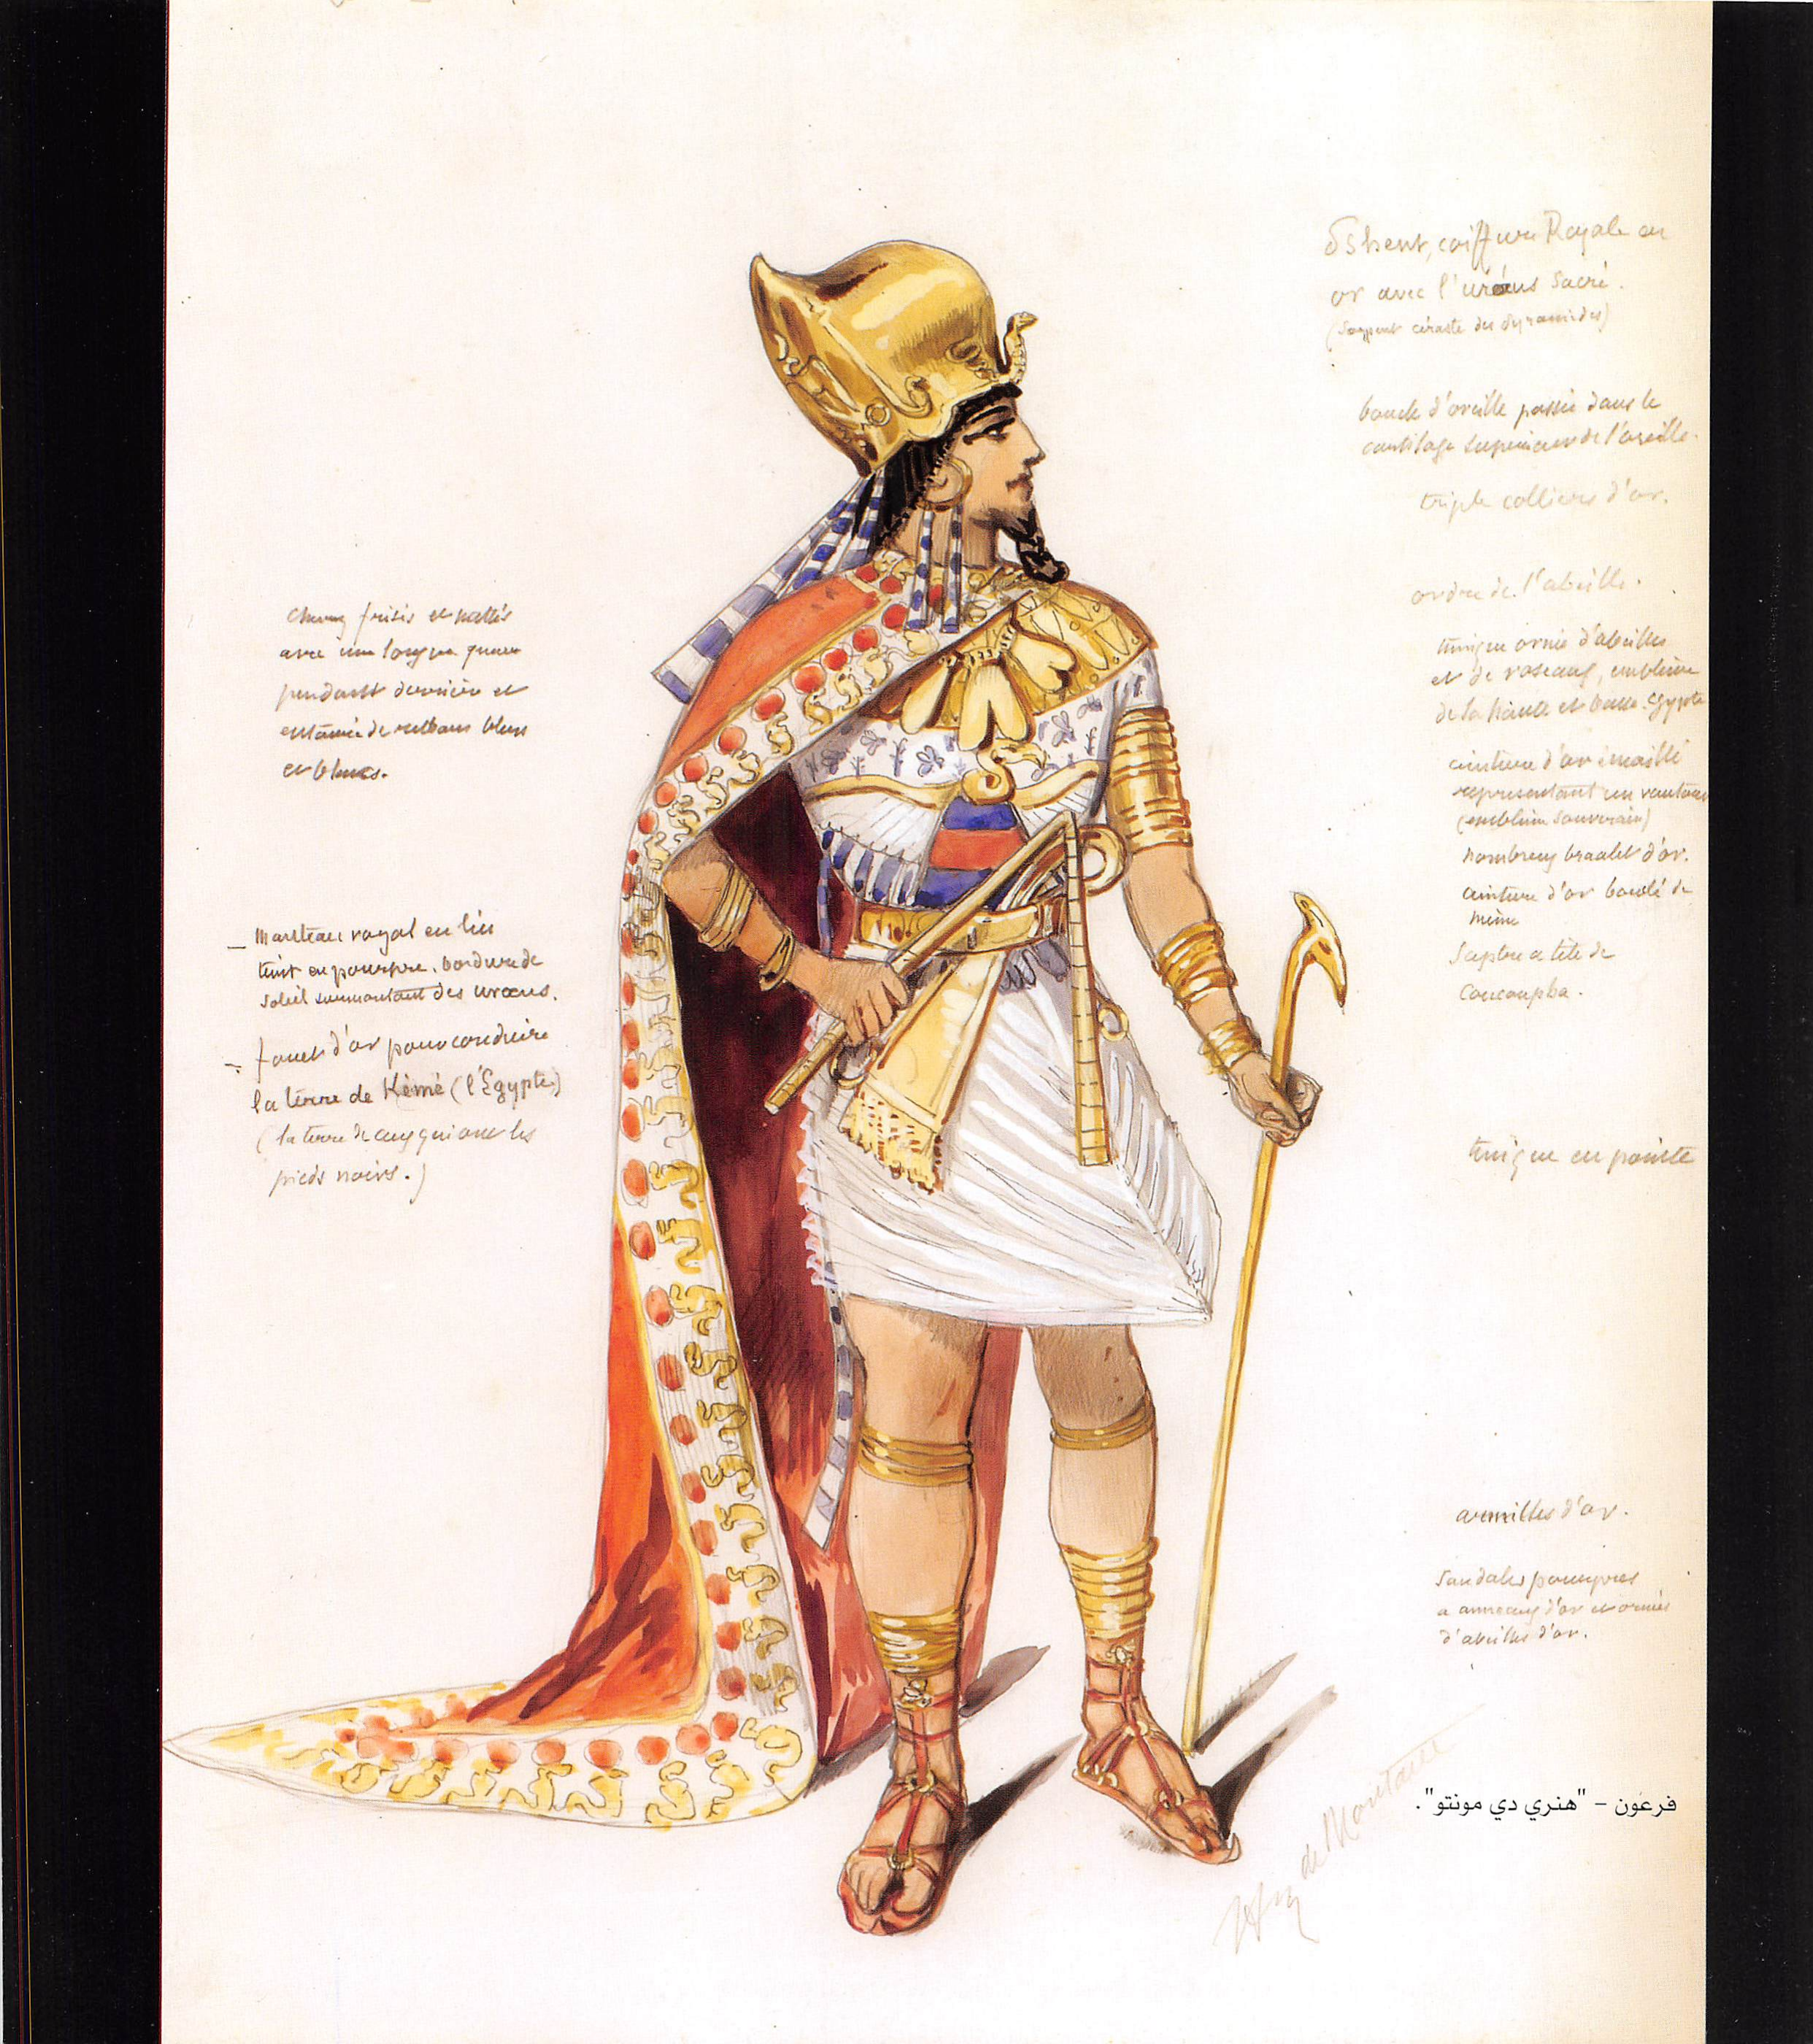 cheveux frisés et nattés
avec une longue queue
pendant derrière et
de rubans bleus
et blancs.
– Manteau royal en lin
teint en pourpre. bordure de
soleil surmontant des uraeus.
– fouet d'or pour conduire
la terre de Kémé (l'Egypte)
(la terre de ceux qui ont les
pieds noirs.)
Pshent, coiffure Royale en
or avec l'uraeus sacré.
(serpent céraste des pyramides)
boucle d'oreille passée dans le
cartilage supérieur de l'oreille.
triple colliers d'or.
ordre de l'abeille.
tunique ornée d'abeilles
et de roseaux, emblème
de la haute et basse Egypte
ceinture d'or émaillé
représentant un vautour
(emblème souverain)
nombreux bracelet d'or.
ceinture d'or bouclé de
même
Sceptre a tête de
Coucoupha.
tunique en pointe
armilles d'or.
Sandales pourpres
a anneaux d'or et ornées
d'abeilles d'or.
Hy de Montaut
فرعون – "هنري دي مونتو".